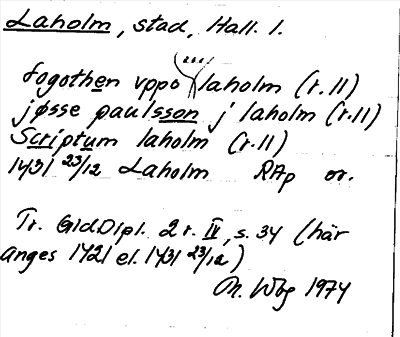 Laholm, stad, Hall. l.
fogothen vppo laholm (r. 11)
jøsse paulsson j laholm (r. 11)
Scriptum laholm (r. 11)
1431 23/12 Laholm RAp or.
Tr. Gld.Dipl. 2 r. IV, s. 34 (här
anges 1421 el. 1431 23/12)
M. Wbg 1974